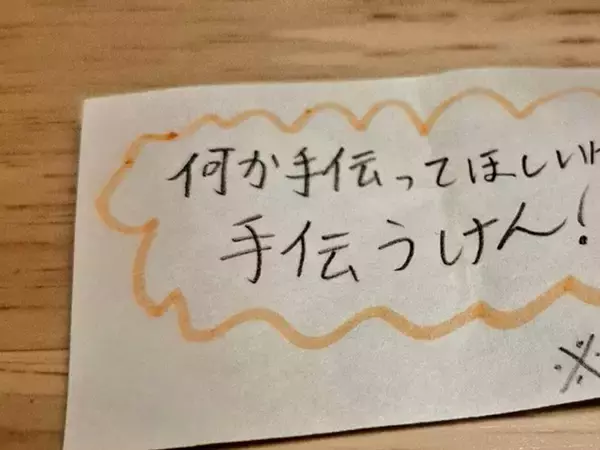 何か手伝ってほしい
手伝うけん!
※